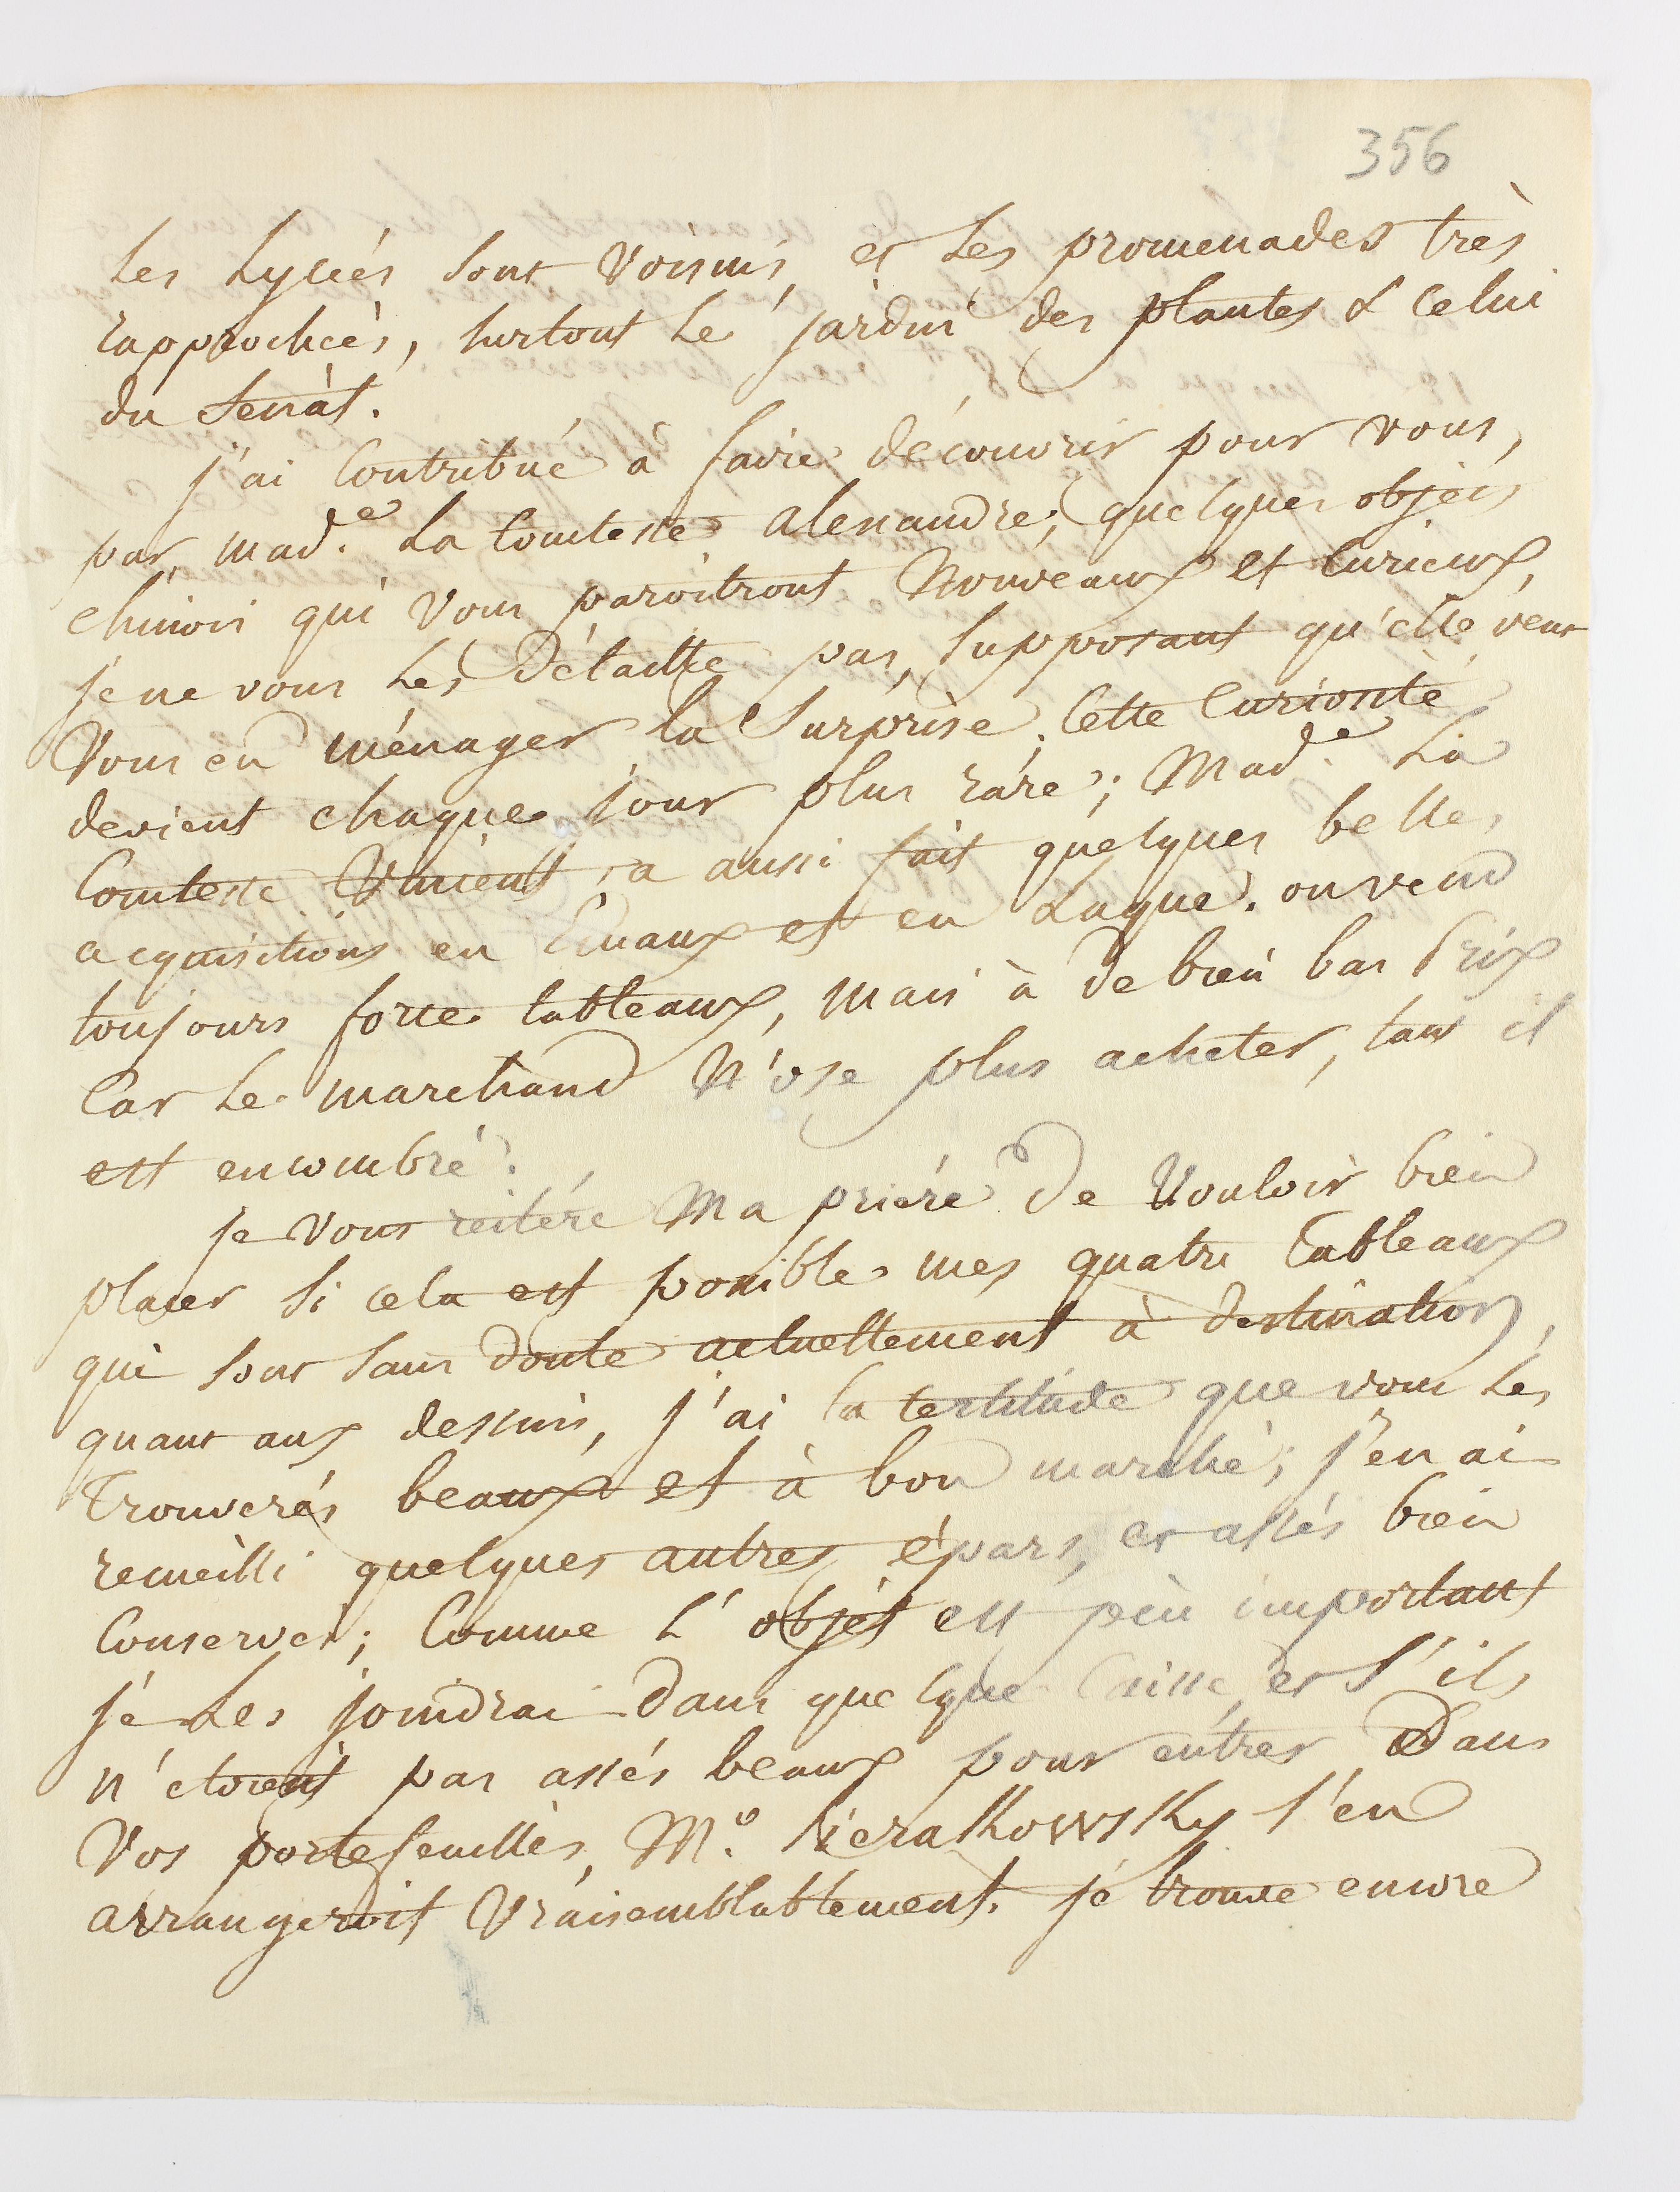 356
les Lycées sont voisins, et les promenades très
rapprochées, surtout le jardin des plantes & celui
du Senàt.
j'ai contribué à faire découvrir pour vous,
par mad.e la comtesse alexandre, quelques objets
chinois qui vous paroitront nouveaux et curieux,
je ne vous les détaille pas, supposant qu'elle veut
vous en ménager la surprise; cette curiosité
devient chaque jour plus rare; Mad.e La
Comtesse Vincent, a aussi fait quelques belles
acquisitions en Emaux et en Laque. on vend
toujours force tableaux, mais à de bien bas Prix
Car le marchand n'ose plus acheter, tant il
est encombré.
je vous reitére Ma priére de vouloir bien
placer si cela est possible mes quatre tableaux
qui sont sans doute actuellement à destination,
quant aux dessins, j'ai la certitude que vous les
trouverés beaux et à bon marché; j'en ai
recueilli quelques autres épars, et assés bien
Conservés; Comme L'objét est peu important
je les joindrai dans quelque Caisse, et s'ils
n'étoient pas assés beaux pour entrer Dans
Vos portefeuilles, M.r Sierakowsky s'en
arrangeroit vraisemblablement. je trouve encore